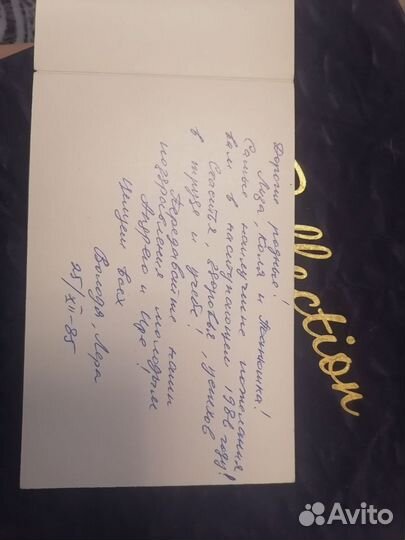 Дорогие родные!
Лиза, Коля и Танюшка!
Самые наилучшие пожелания
вам в наступающем 1986 году!
Счастья, здоровья, успехов
в труде и учебе!
Передавайте наши
поздравления молодым
Андрею и Иде
Целуем всех
Володя, Лера
25/XII-85
Collection
Avito